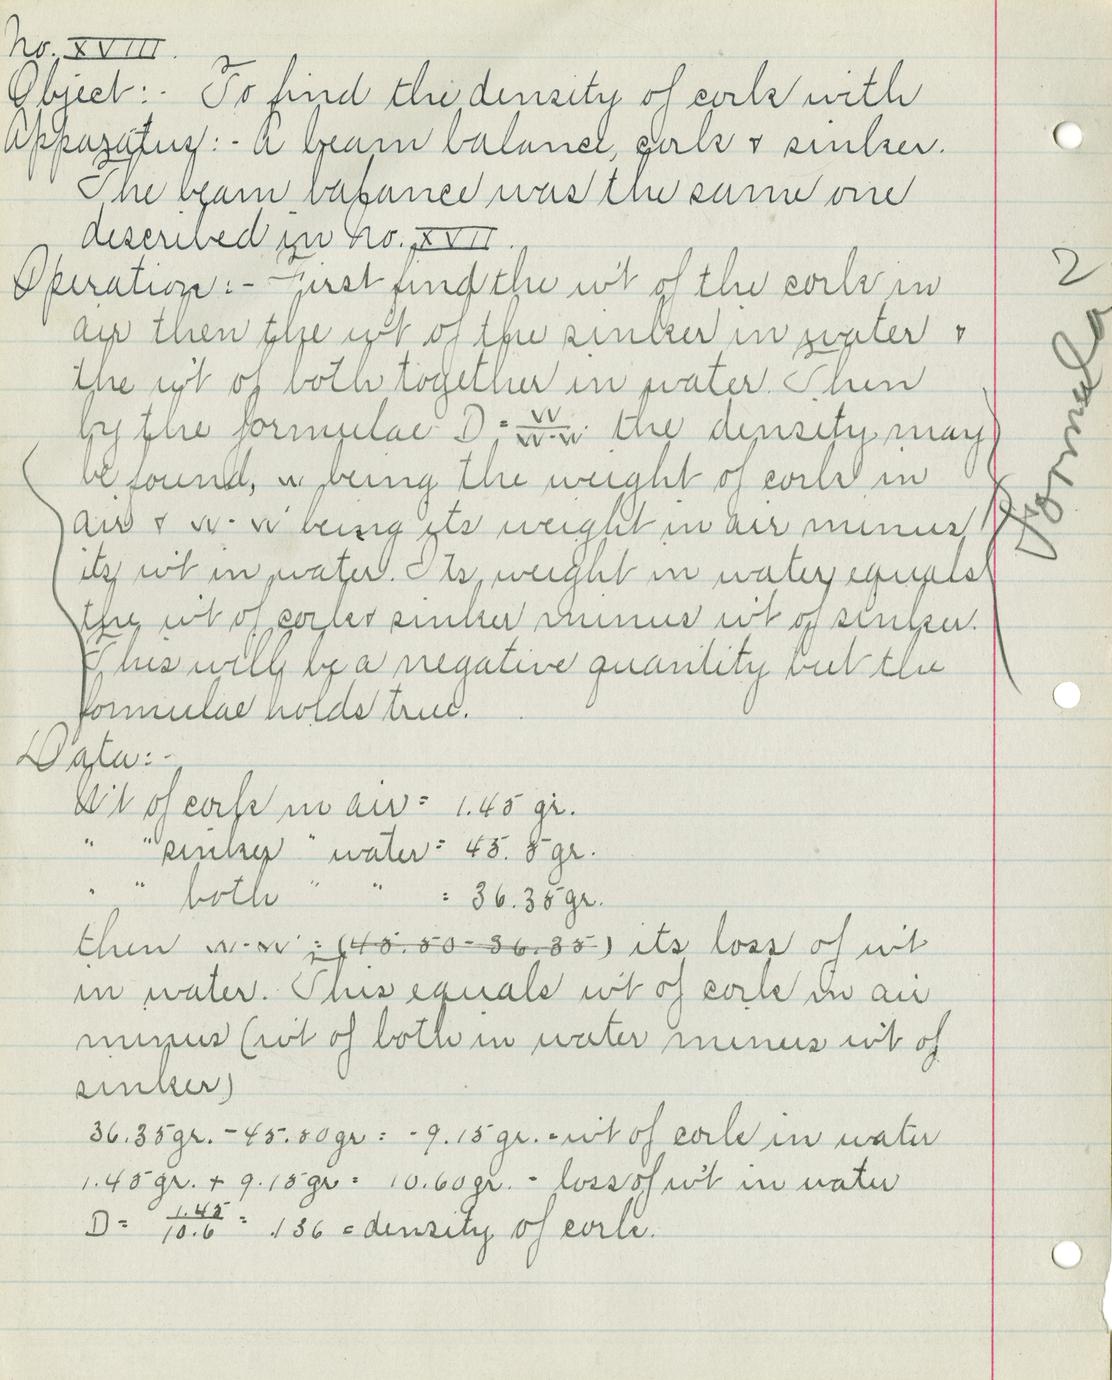 No. XVIII.
Object:- To find the density of cork with
Apparatus:- A beam balance, cork & sinker.
The beam balance was the same one
described in No. XVII.
Operation:- First find the w't of the cork in
air then the w't of the sinker in water &
the w't of both together in water. Then
by the formulae D = W/W-W' the density may
be found, W being the weight of cork in
air & W-W' being its weight in air minus
its wt in water. Its weight in water equals
the w't of cork & sinker minus w't of sinker.
This will be a negative quantity but the
formulae holds true.
Data:-
W't of cork in air = 1.45 gr.
" " sinker " water = 45.5 gr.
" " both " " = 36.35 gr.
then W-W' = (45.50-36.35) its loss of w't
in water. This equals w't of cork in air
minus (w't of both in water minus w't of
sinker)
36.35gr. - 45.50gr = -9.15gr. = w't of cork in water
1.45gr. + 9.15gr = 10.60gr. = loss of w't in water
D = 1.45/10.6 = .136 = density of cork.
Formula
2